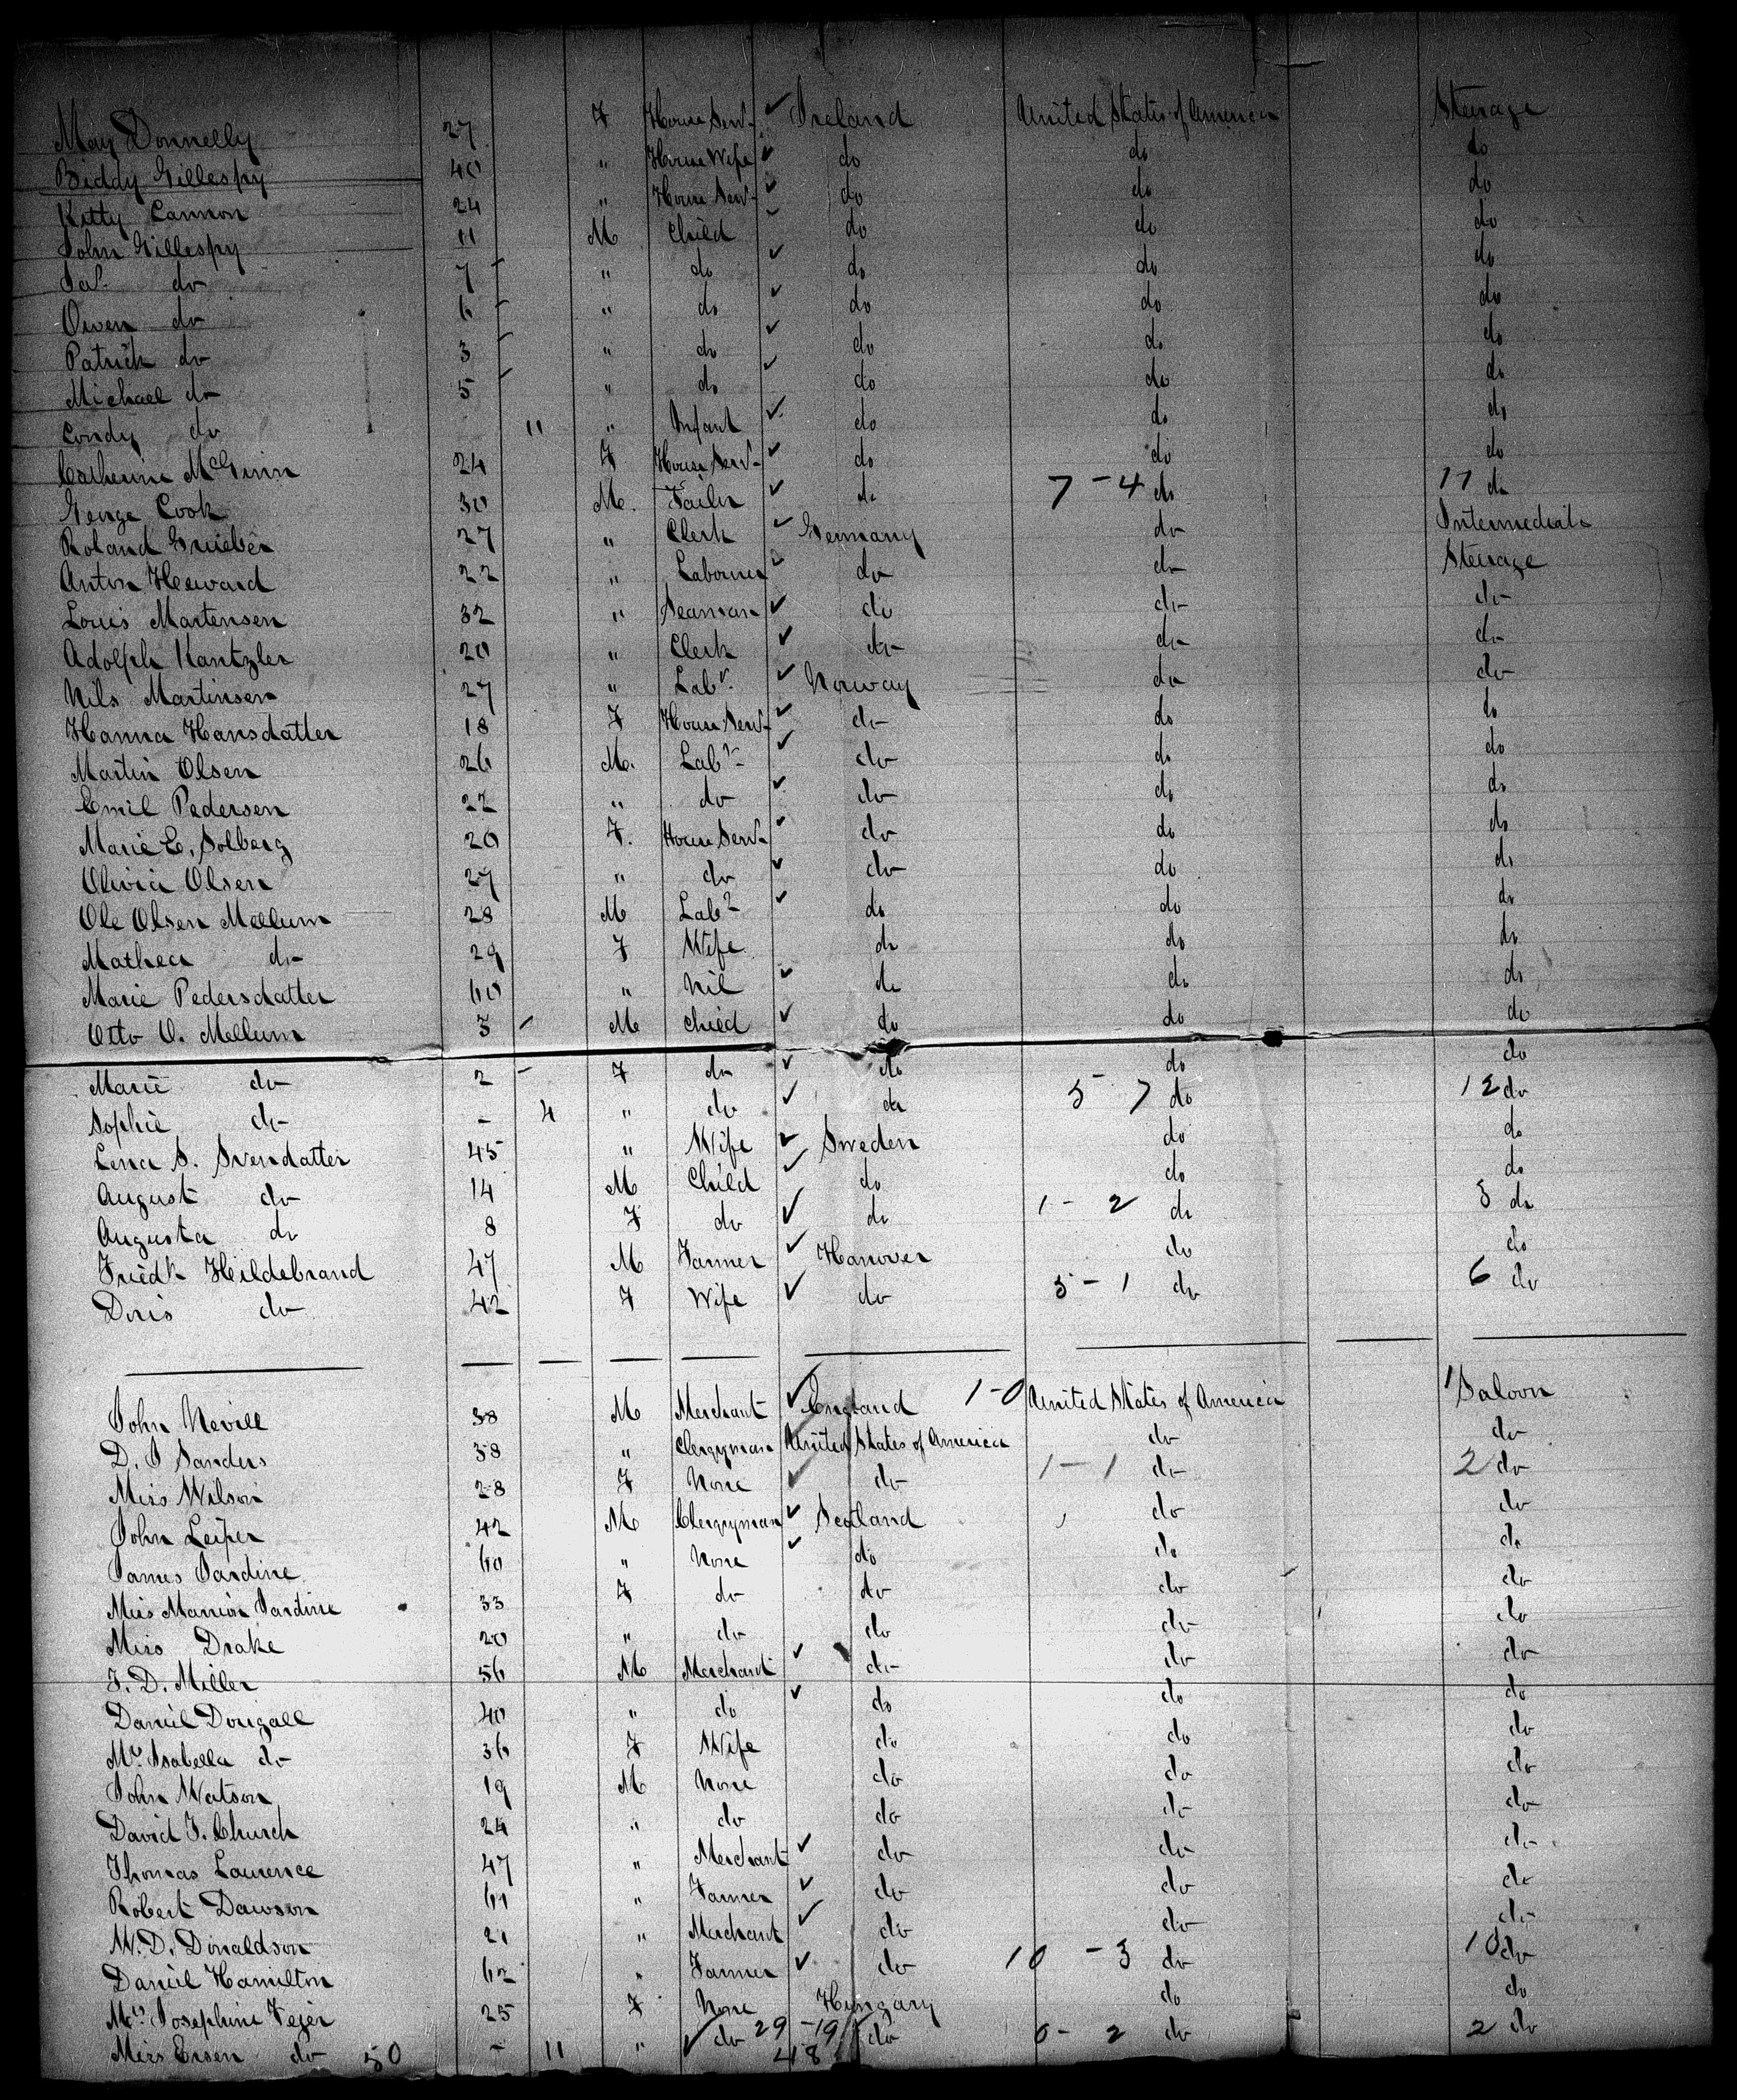 May Donnelly 27 F House Servt Ireland United States of America Steerage
Biddy Gillespy 40 " House Wife do do do
Kitty Cannon 24 " House Servt do do do
John Gillespy 11 M Child do do do
Jas. do 7 " do do do do
Owen do 6 " do do do do
Patrick do 3 " do do do do
Michael do 5 " do do do do
Condy do 11 " Infant do do do
Catherine McGinn 24 F House Servt do do do
George Cook 30 M. Tailor do 7 - 4 do 11 do
Roland 27 " Clerk Germany do Intermediate
Anton 22 " Labourer do do Steerage
Louis Martensen 32 " Seaman do do do
Adolph Kantzler 20 " Clerk do do do
Nils Martinsen 27 " Labr. Norway do do
Hanna Hansdatter 18 F House Servt do do do
Martin Olsen 26 M. Labr do do do
Emil Pedersen 22 " do do do do
Marie E. Solberg 20 F. House Servt do do do
Olivia Olsen 29 " do do do do
Ole Olsen Mellum 28 M Labr do do do
Mathea do 29 F Wife do do do
Marie Pedersdatter 60 " Nil do do do
Otto O. Mellum 3 M Child do do do
Marie do 2 - F do do do do
Sophie do - 4 " do do 5 7 do 12 do
Lena S. Svendatter 45 " Wife Sweden do do
August do 14 M Child do do do
Augusta do 8 F do do 1 - 2 do 3 do
Friedk Hildebrand 47 M Farmer Hanover do do
Doris do 42 F Wife do 5 - 1 do 6 do
John Nevill 38 M Merchant England 1-0 United States of America 1 Saloon
D. J Sanders 38 " Clergyman United States of America do do
Miss Wilson 28 F None do 1 - 1 do 2 do
John Leiper 42 M Clergyman Scotland do do
James Jardine 60 " None do do do
Miss Marrion Jardine 33 F do do do do
Miss Drake 20 " do do do do
J. D. Miller 56 M Merchant do do do
Daniel Dougall 40 " do do do do
Mrs Isabella do 36 F Wife do do do
John Watson 19 M None do do do
David J. Church 24 " do do do do
Thomas Laurence 47 " Merchant do do do
Robert Dawson 61 " Farmer do do do
W. D. Donaldson 21 " Merchant do do do
Daniel Hamilton 62 " Farmer do 10 - 3 do 13 do
Mrs Josephine Fejer 25 F None Hungary do do
Miss do 50 - 11 " do 29 - 19 do 0 - 2 do 2 do
48